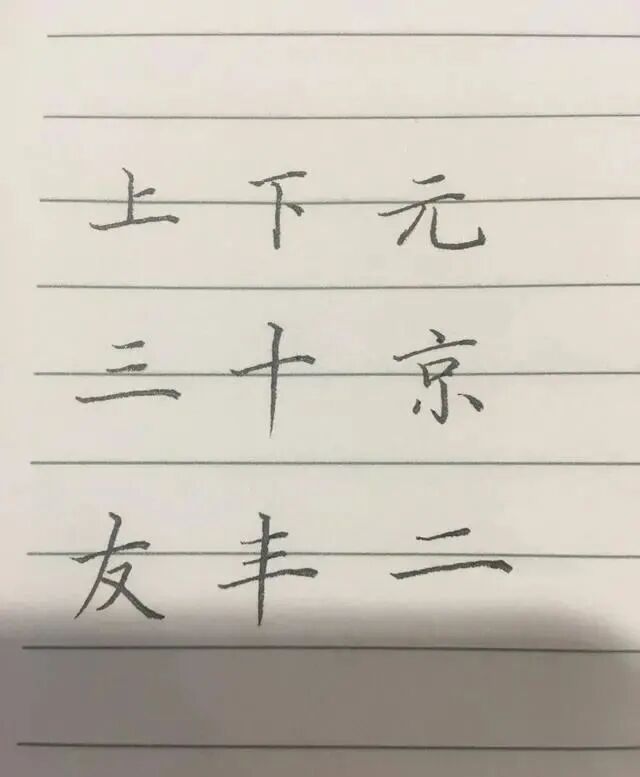 上 下 元
三 十 京
友 丰 二